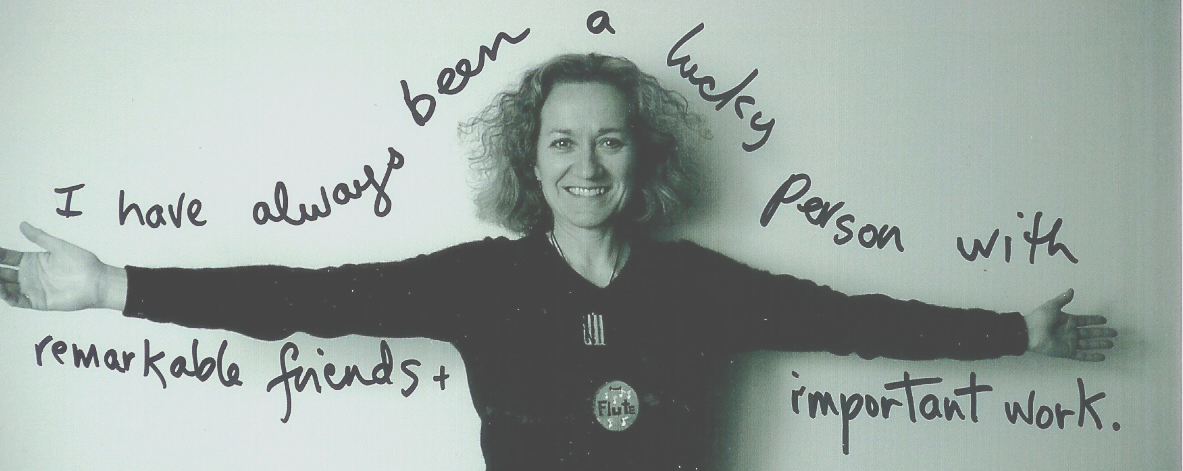 I have always been a lucky person with
remarkable friends + important work.
Flute